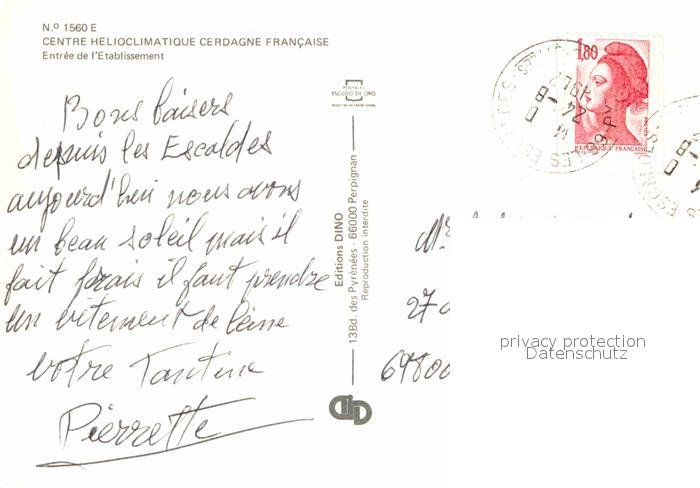 N.º 1560 E
CENTRE HELIOCLIMATIQUE CERDAGNE FRANÇAISE
Entrée de l'Etablissement
POSTALES
ESCUDO DE ORO
Bons baisers
depuis les Escaldes
aujourd'hui nous avons
un beau soleil mais il
fait frais il faut prendre
un vêtement de laine
votre Tantine
Pierrette
Editions DINO
13Bd. des Pyrénées - 66000 Perpignan
Reproduction interdite
1,80
REPUBLIQUE FRANÇAISE
LES ESCALDES
24-8
66-PY
M
27
69800
privacy protection
Datenschutz